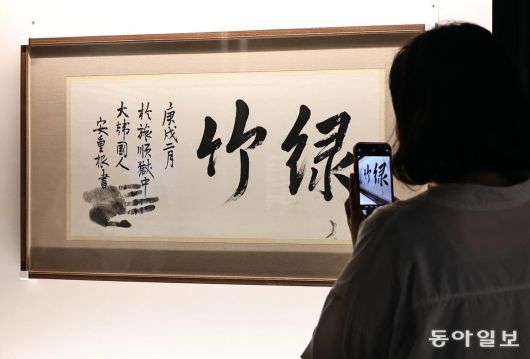 綠竹
庚戌二月
於旅順獄中
大韓國人
安重根書
동아일보